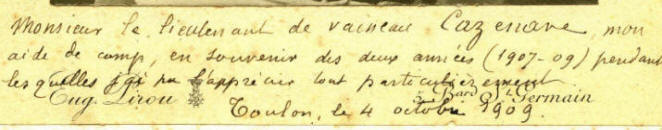 Monsieur le lieutenant de vaisseau Cazenave, mon
aide de camp, en souvenir des deux années (1907-09) pendant
lesquelles j'ai pu l'apprécier tout particulièrement
Eug. Pirou 5, Bard St Germain
Toulon, le 4 octobre 1909.